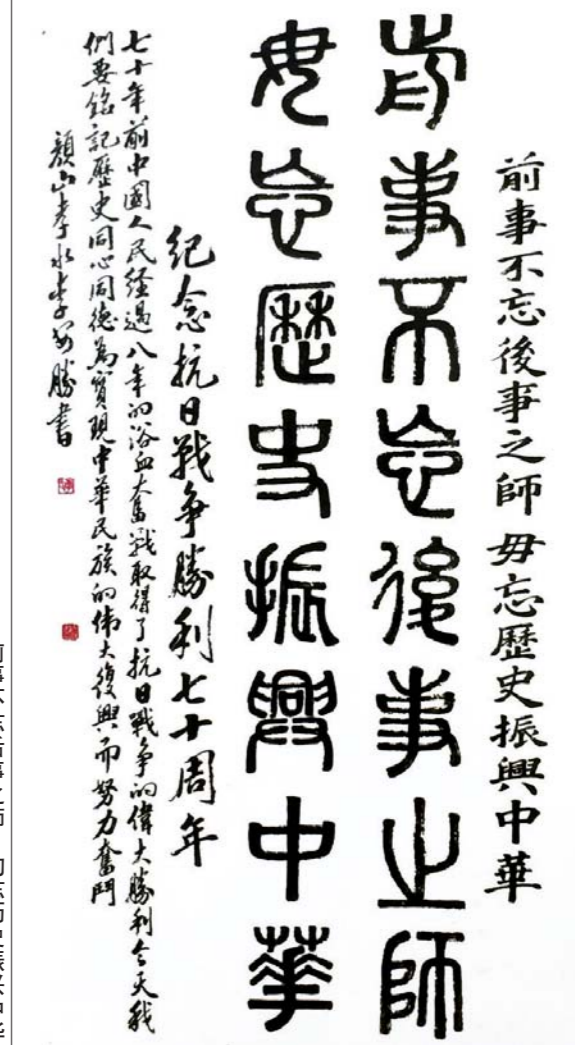 前事不忘後事之師 毋忘歷史振興中華
前事不忘後事之師
毋忘歷史振興中華
紀念抗日戰爭勝利七十周年
七十年前中國人民經過八年的浴血奮戰取得了抗日戰爭的偉大勝利今天我
們要銘記歷史同心同德為實現中華民族的偉大復興而努力奮鬥
顏山孝水李
勝書